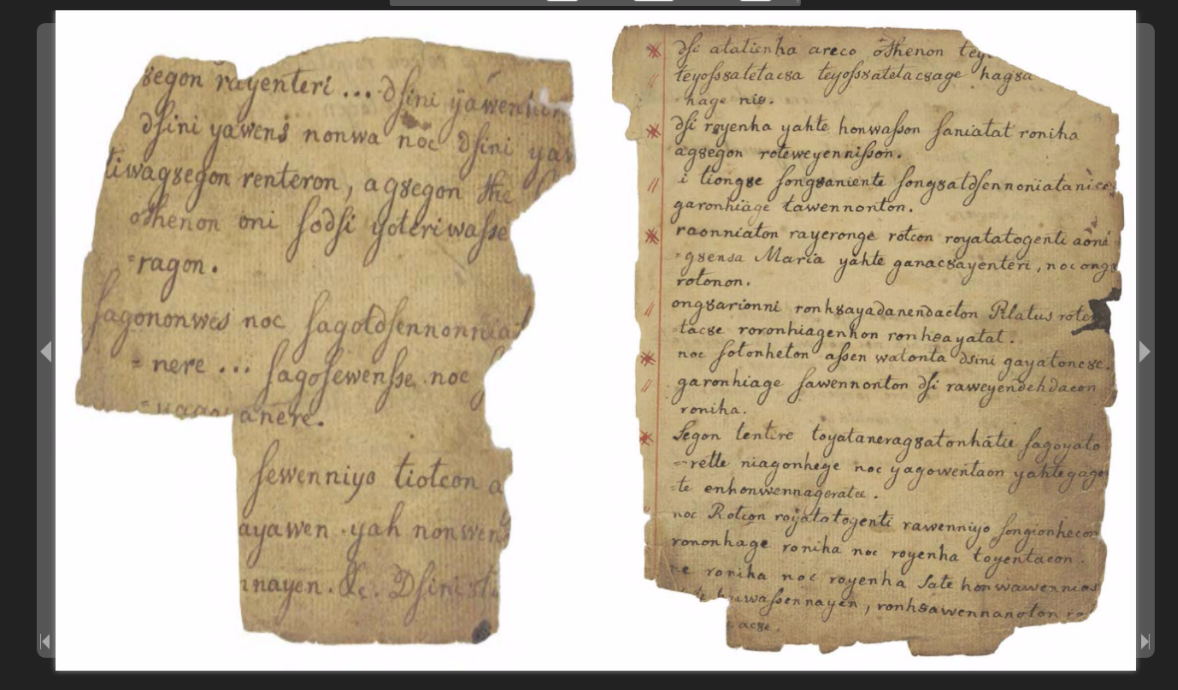 segon rayenteri ... dſini ÿawenhon
dſini yawens nonwa noc dſini yaw
tiwagsegon renteron, agsegon the
othenon oni ſodſi yoteriwaſse
=ragon.
ſagononwes noc ſagotdſennonniat
= nere ... ſagoſewenſse noc
anere.
ſewenniyo tiotcon a
ayawen . yah nonwen
nnayen. &c. Dſini
dſi atatienha areco othenon tey
teyoſsatetacsa teyoſsatetacsage hagsa
hage nis.
dſi royenha yahte honwaſson ſaniatat roniha
agsegon roteweyenniſson.
i tiongse ſongsaniente ſongsatdſennoniatani
garonhiage tawennonton.
raonniaton rayeronge rotcon royatatogenti aoné
=gsensa Maria yahte ganacsayenteri, noc ongs
rotonon.
ongsarionni ronhsayadanendacton Pilatus rote
tacse roronhiagenhon ronhsayatat.
noc ſotonheton aſsen watonta dsini gayatoncse.
garonhiage ſawennonton dſi raweyendehdacon
roniha.
Segon tentire toyataneragsatonhatie ſagoyato
=rette niagonhege noc yagowentaon yahtegage
=te enhonwennageratee.
noc Rotcon royatatogenti rawenniyo ſongionhecon
rononhage roniha noc royenha toyentacon.
ne roniha noc royenha Sate honwawennios
huwaſsennayen, ronhsawennanoton ro
acse.